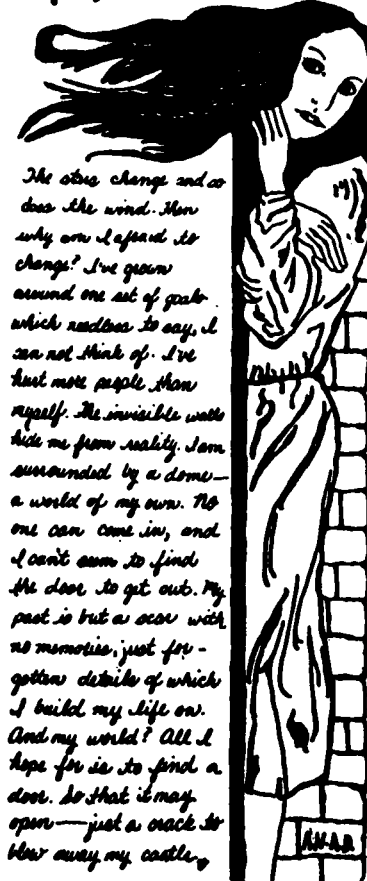 The stars change and so
does the wind. Then
why am I afraid to
change? I've grown
around one set of goals
which needless to say, I
can not think of. I've
hurt more people than
myself. The invisible walls
hide me from reality. I am
surrounded by a dome—
a world of my own. No
one can come in, and
I can't seem to find
the door to get out. My
past is but a scar with
no memories, just for-
gotten details of which
I build my life on.
And my world? All I
hope for is to find a
door. So that it may
open—just a crack to
blow away my castle.